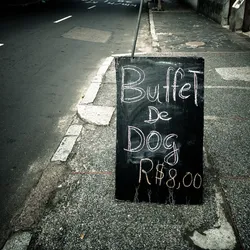 BuffeT
De
DOG
R$8,00